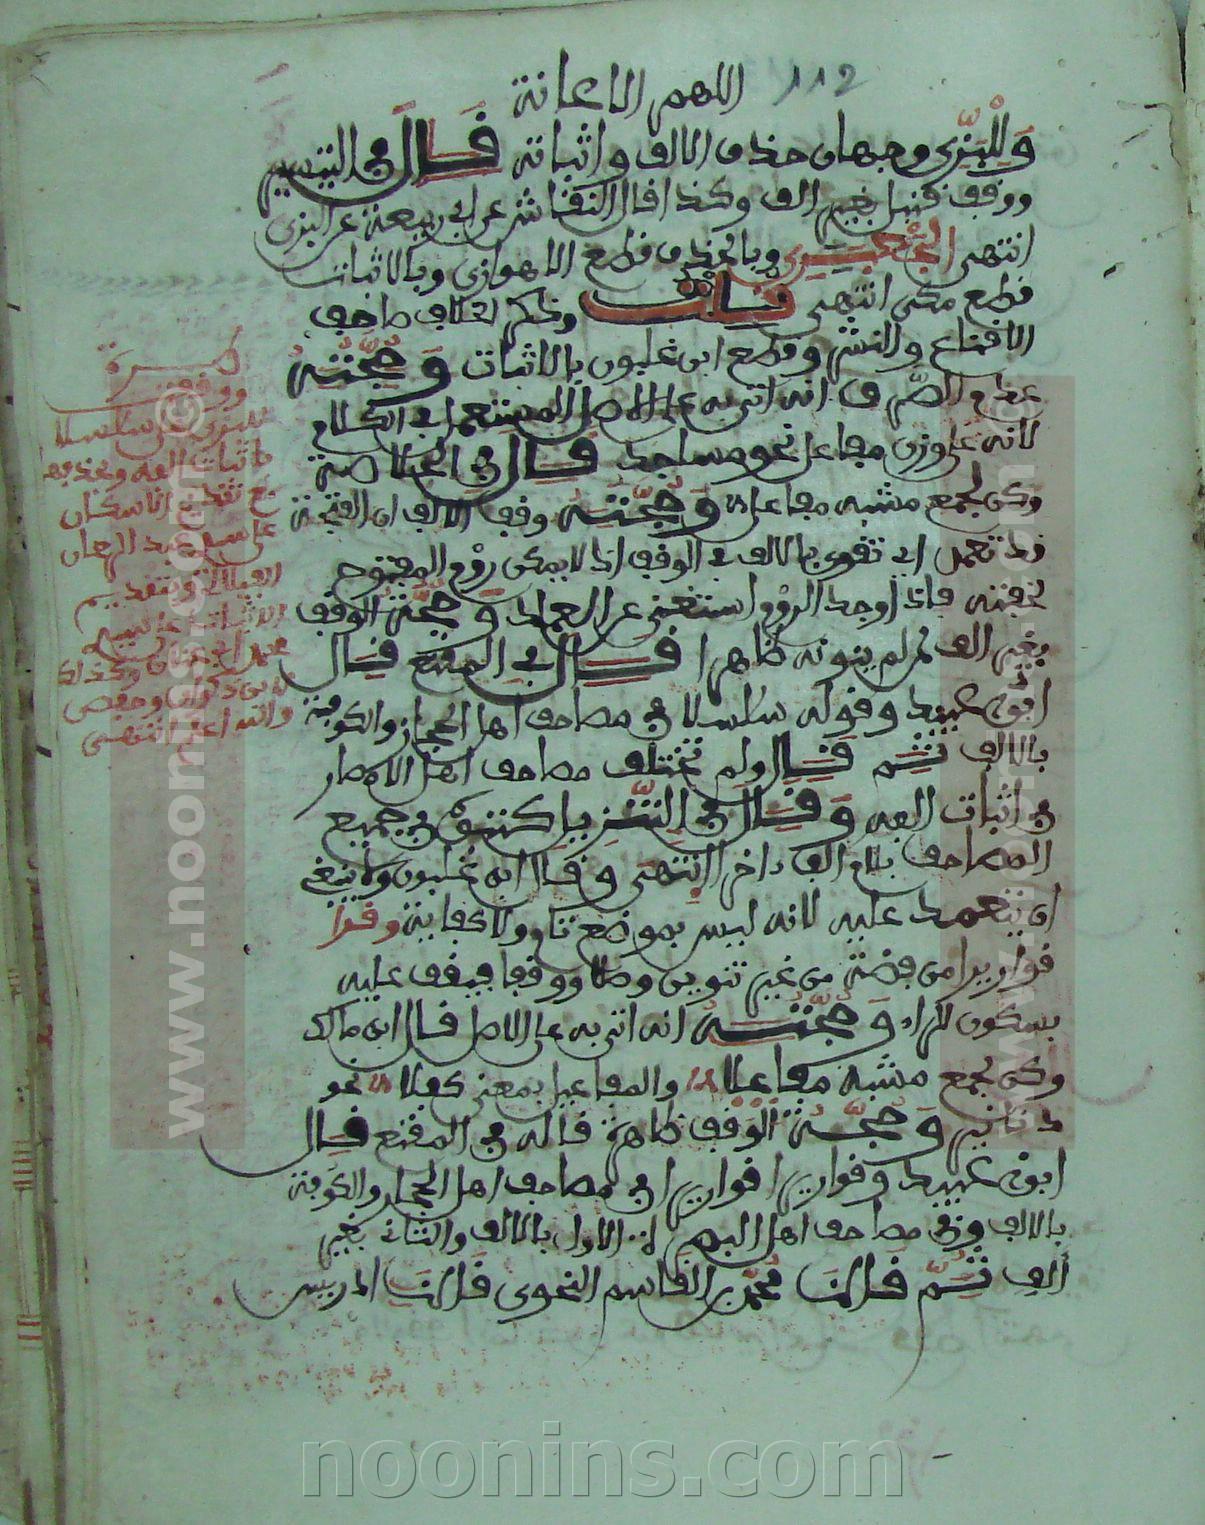 112
اللهم الاعانة
وللبزي وجهان حذف الالف واثباته قال في التيسير
ووقف قنبل بغير الف وكذا قال النقاش عن ابي ربيعة عن البزي
انتهى الجعبري وبالحذف قطع الاهوازي وبالاثبات
قطع مكي انتهى قلت وحكى الخلاف صاحب
الاقناع والنشر وقطع ابن غلبون بالاثبات وحجته
عدم الصرف انه اتى به على الاصل المستعمل في الكلام
لانه على وزن مفاعل نحو مساجد قال في الخلاصة
وكن لجمع مشبه مفاعلا وحجته وقف الالف ان الفتحة
قد تعمل اي تقوى بالالف في الوقف اذ لا يمكن روم المفتوح
لخفته فاذا وجد الروم استغنى عن العماد وحجة الوقف
بغير الف لمن لم ينونه ظاهر قال في المقنع قال
ابو عبيد وقوله سلسلا في مصاحف اهل الحجاز والكوفة
بالالف ثم قال ولم تختلف مصاحف اهل الامصار
في اثبات الفه وقال في التنزيل كتبوه في جميع
المصاحف بلام الف داخر انتهى وقال ابن غلبون ولا ينبغي
ان يتعمد عليه لانه ليس بموضع تام ولا كفاية وقرا
قواريرا من فضة من غير تنوين وصلا ووقفا فيقف عليه
بسكون الراء وحجته انه اتى به على الاصل قال ابن مالك
وكن لجمع مشبه مفاعلا والمفاعيل بمعنى كفلا نحو
دنانير وحجة الوقف ظاهرة قاله في المقنع قال
ابو عبيد وقواريرا قواريرا في مصاحف اهل الحجاز والكوفة
بالالف وفي مصاحف اهل البصرة الاول بالالف والثاني بغير
الف ثم قال محمد بن القاسم النحوي قال ادريس
طرة
ووقف
سلسلا
باثبات الفه وحذفها
مع تقديم الاسكان
وحفص
والله اعلم انتهى
www.noonins.com©
www.noonins.com©
noonins.com